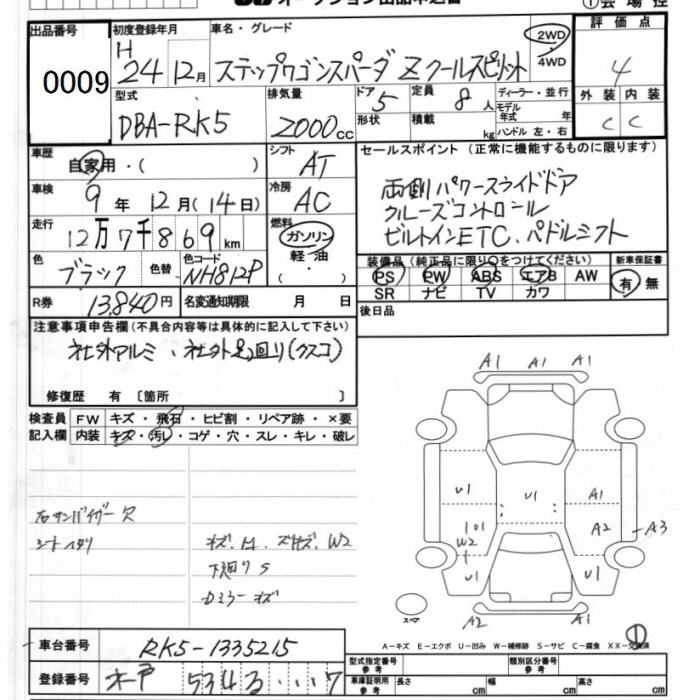 出品番号 0009
初度登録年月 H 24年12月
車名・グレード ステップワゴンスパーダ Zクールスピリット
2WD・4WD
評価点 4
外装 C 内装 C
型式 DBA-RK5
排気量 2000cc
ドア 5 形状
定員 8人 積載 kg
ディーラー・並行
モデル年式 年
ハンドル 左・右
車歴 自家用・( )
シフト AT
セールスポイント (正常に機能するものに限ります)
車検 9年12月(14日)
冷房 AC
両側パワースライドドア
クルーズコントロール
ビルトインETC、パドルシフト
走行 12万7千869km
燃料 ガソリン 軽・油 ( ・ )
色 ブラック 色替 色コード NH812P
装備品 (純正品に限り○をつけてください)
新車保証書 有 無
PS PW ABS エアB AW
SR ナビ TV カワ
R券 13,840円 名変通知期限 月 日
後日品
注意事項申告欄 (不具合内容等は具体的に記入して下さい)
社外アルミ、社外足回り(クスコ)
修復歴 有 [箇所 ]
検査員記入欄
FW キズ・飛石・ヒビ割・リペア跡・×要
内装 キズ・汚レ・コゲ・穴・スレ・キレ・破レ
右サンバイザー欠
シートヘタリ
キズ、H、スリキズ、W2
下廻りS
Dミラーキズ
A1 A1 A1
U1 U1 A1
U1 W2 A2 A3
U1 U1
A2 A1
スペア
A-キズ E-エクボ U-凹み W-補修跡 S-サビ C-腐食 XX-交換済
①
車台番号 RK5-1335215
登録番号 534 ・・・7
型式指定番号 参考
類別区分番号 参考
車庫証明用 参考 長さ cm 幅 cm 高さ cm